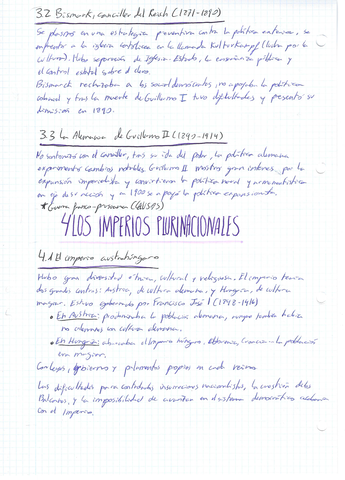 3.2 Bismarck, canciller del Reich (1871-1890)
Se plasmó en una estrategia preventiva contra la política exterior, se
enfrentó a la iglesia católica en la llamada Kulturkampf (lucha por la
cultura). Hubo separación de Iglesia-Estado, la enseñanza pública y
el control estatal sobre el clero.
Bismarck rechazaba a los socialdemócratas, no apoyaba la política
colonial y tras la muerte de Guillermo I tuvo dificultades y presentó su
dimisión en 1890.
3.3 La Alemania de Guillermo II (1890-1914)
No sintonizó con el canciller, tras su ida del poder, la política alemana
experimentó cambios notables. Guillermo II mostró gran interés por la
expansión imperialista y convirtieron la política naval y armamentística
en eje de su acción y en 1900 se apoyó la política expansionista.
* Guerra franco-prusiana (CAUSAS)
4 LOS IMPERIOS PLURINACIONALES
4.1 El imperio austrohúngaro
Había gran diversidad étnica, cultural y religiosa. El imperio tenía
dos grandes centros: Austria, de cultera alemana, y Hungría, de cultura
magiar. Estuvo gobernado por Francisco José I (1848-1916)
• En Austria: predominaba la población alemana, aunque también había
no alemanes con cultura alemana.
• En Hungría: abarcaba el Imperio húngaro, Eslovenia, Croacia... la población
era magiar.
Con leyes, gobiernos y parlamentos propios en cada reino.
Las dificultades para controlar las insurrecciones nacionalistas, la cuestión de los
Balcanes, y la imposibilidad de avanzar en el sistema democrático acabaron
con el Imperio.